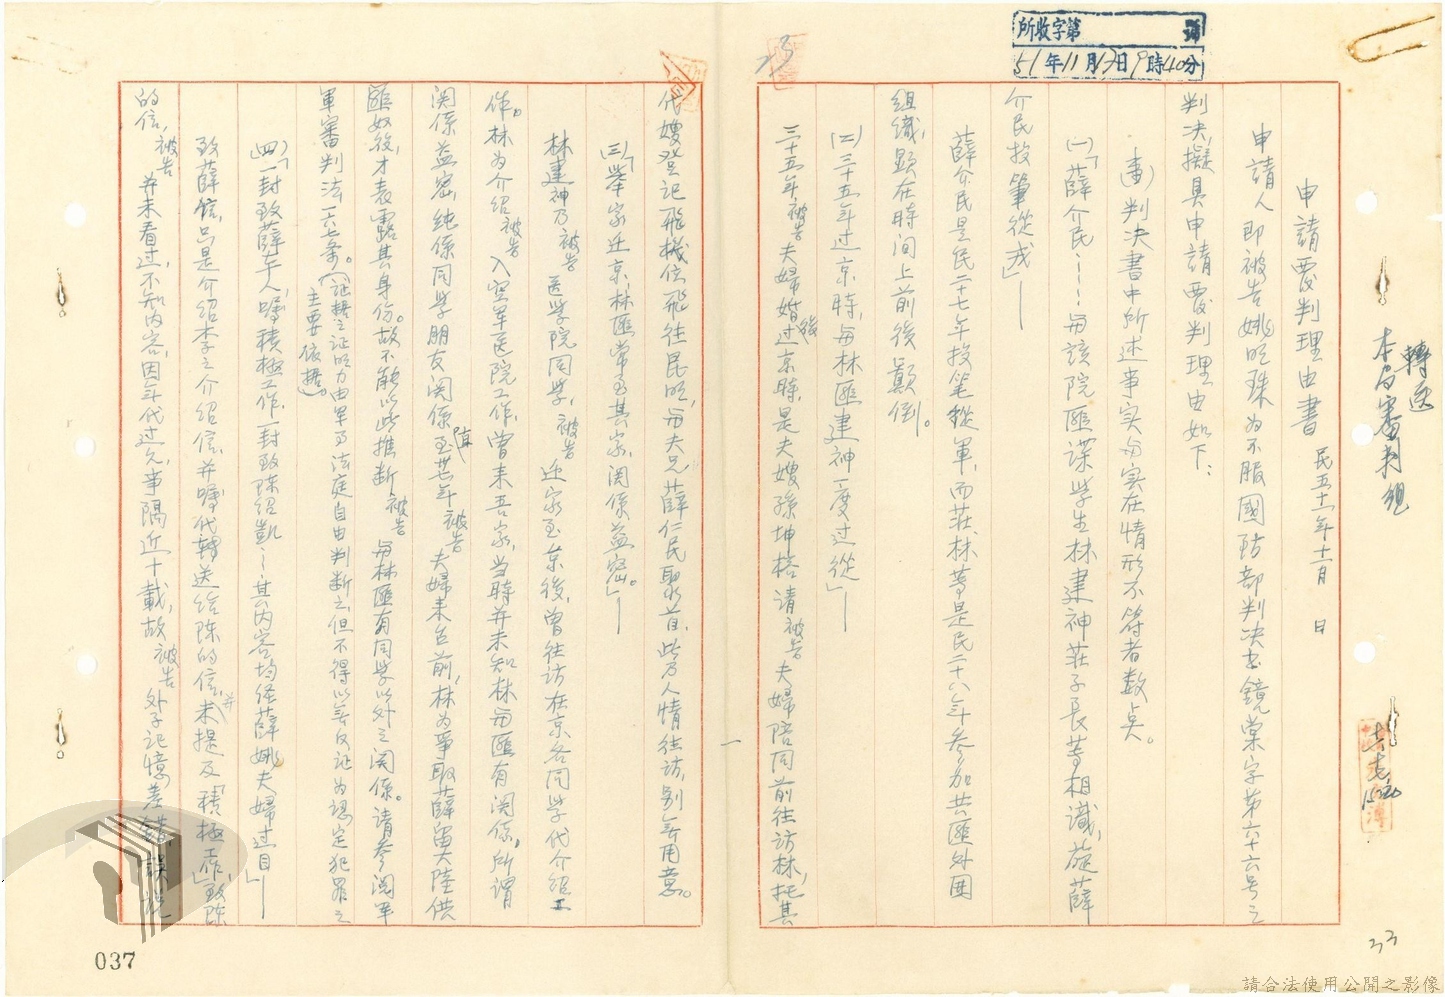 所收字第 號
51年11月17日9時40分
轉送
本局審判組
申請覆判理由書 民五十一年十一月 日
申請人即被告姚明珠為不服國防部判決書鏡棠字第六十六号之
判決,擬具申請覆判理由如下:
(壹)判決書中所述事实与实在情形不符者数点。
(一)「薛介民……与該院匪諜学生林建神莊子長等相識,旋薛
介民投筆從戎」—
薛介民是民二十七年投笔從軍,而莊林等是民二十八年参加共匪外围
組織,顕在時间上前後顛倒。
(二)三十五年过京時,与林匪建神一度过從」—
三十五年被告夫婦婚後过京時,是夫嫂孫坤榕請被告夫婦陪同前往訪林,托其
一
代嫂登記飛機位飛往昆明,与夫兄薛仁民聚首,此乃人情往訪,别無用意。
(三)「舉家迁京,林匪常至其家,関係益密。」—
林建神乃被告医学院同学,被告迁家至京後,曾往訪在京各同学代介紹工
作。林为介紹被告入空軍医院工作,曾来吾家,当時并未知林与匪有関係,所謂
関係益密,純係同学朋友関係,直至卅七年被告夫婦来台前,林为爭取薛留大陸供
匪奴役,才表露其身份。故不能以此推断被告与林匪有同学以外之関係。請参閱軍
軍審判法一六七条。(証據之証明力由軍事法庭自由判断之,但不得以無反証为認定犯罪之
主要依據)
(四)「一封致薛等人,嘱積極工作,一封致陈紹凱…其内容均经薛姚夫婦过目」—
致薛信,只是介紹李之介紹信,并嘱代轉送給陈的信,并未提及「積極工作」,致陈
的信,被告并未看过,不知内容,因年代过久,事隔近十載,故被告外子記憶差錯,誤説
037
33
請合法使用公開之影像